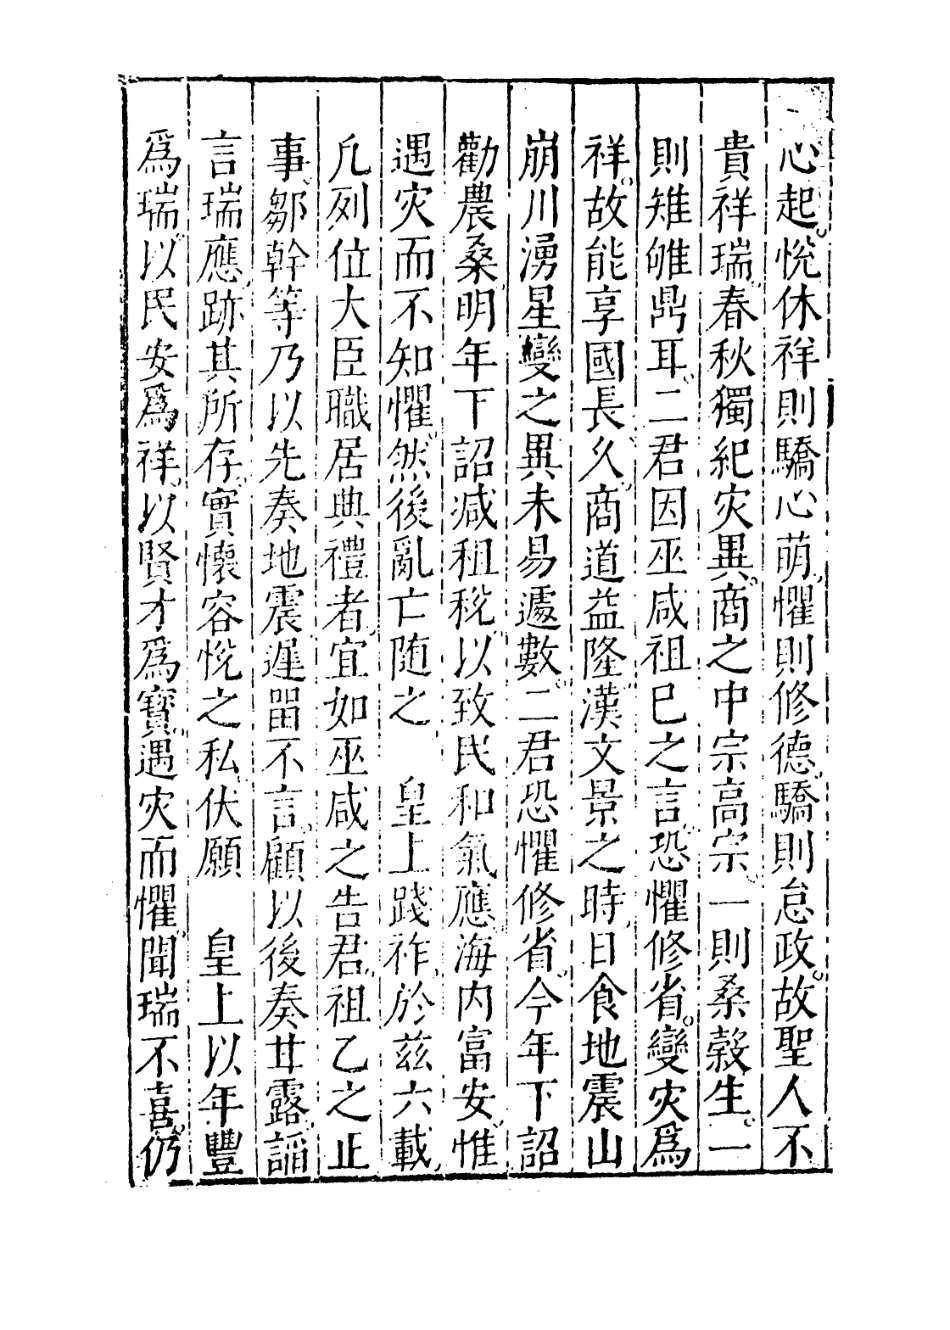 心起悅休祥則驕心萌懼則修德驕則怠政故聖人不
貴祥瑞春秋獨紀灾異商之中宗高宗一則桑榖生一
則雉雊鼎耳二君因巫咸祖巳之言恐懼修省變灾爲
祥故能享國長久商道益隆漢文景之時日食地震山
崩川湧星變之異未易遽數二君恐懼修省今年下詔
勸農桑明年下詔減租稅以致民和氣應海内富安惟
遇灾而不知懼然後亂亡随之　皇上踐祚於茲六載
凢列位大臣職居典禮者宜如巫咸之告君祖乙之止
事鄒幹等乃以先奏地震遲畱不言顧以後奏甘露謟
言瑞應跡其所存實懷容悅之私伏願　皇上以年豐
爲瑞以民安爲祥以賢才爲寳遇灾而懼聞瑞不喜仍